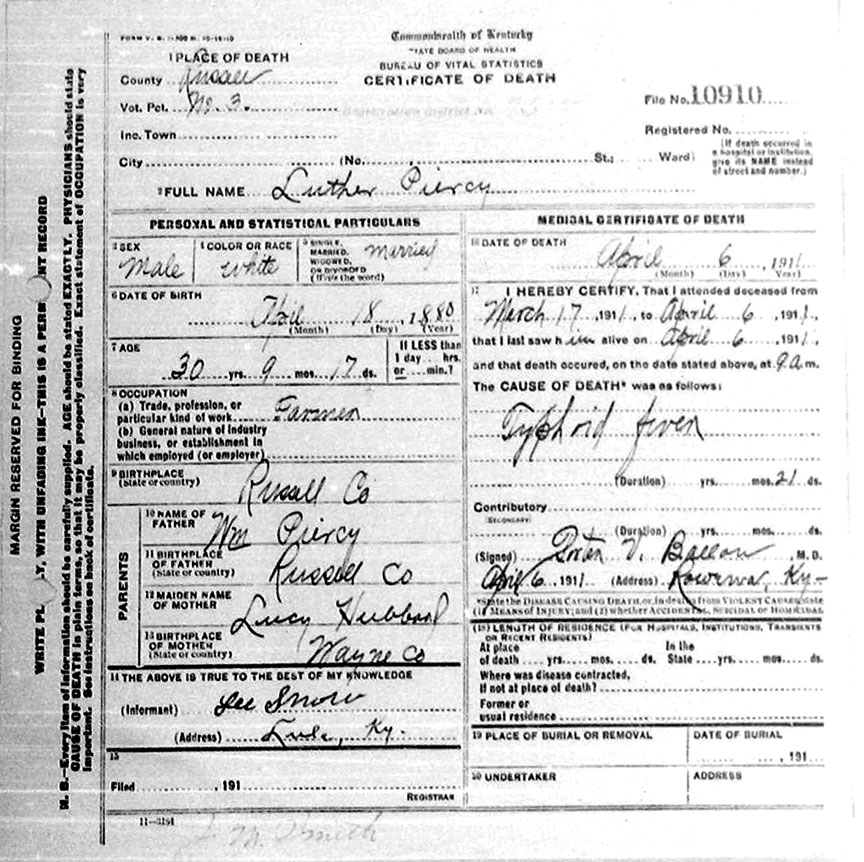 Commonwealth of Kentucky
STATE BOARD OF HEALTH
BUREAU OF VITAL STATISTICS
CERTIFICATE OF DEATH
1 PLACE OF DEATH
County Russell
Vot. Pct. No. 3.
Inc. Town
City (No. , St.; Ward)
File No. 10910
Registered No.
(If death occurred in a hospital or institution, give its NAME instead of street and number.)
2 FULL NAME Luther Piercy
PERSONAL AND STATISTICAL PARTICULARS
3 SEX Male
4 COLOR OR RACE White
5 SINGLE, MARRIED, WIDOWED, OR DIVORCED (Write the word) Married
6 DATE OF BIRTH
April 18, 1880
(Month) (Day) (Year)
7 AGE
30 yrs. 9 mos. 17 ds.
If LESS than 1 day hrs. or min.?
8 OCCUPATION
(a) Trade, profession, or
particular kind of work Farmer
(b) General nature of industry
business, or establishment in
which employed (or employer)
9 BIRTHPLACE
(State or country) Russell Co
PARENTS
10 NAME OF FATHER Wm Piercy
11 BIRTHPLACE OF FATHER (State or country) Russell Co
12 MAIDEN NAME OF MOTHER Lucy Hubbard
13 BIRTHPLACE OF MOTHER (State or country) Wayne Co
14 THE ABOVE IS TRUE TO THE BEST OF MY KNOWLEDGE
(Informant) Lee Snow
(Address) Ky.
15
Filed , 191
REGISTRAR
11-3184
MEDICAL CERTIFICATE OF DEATH
16 DATE OF DEATH
April 6, 1911
(Month) (Day) Year)
17 I HEREBY CERTIFY, That I attended deceased from
March 17, 1911, to April 6, 1911,
that I last saw him alive on April 6, 1911,
and that death occured, on the date stated above, at 9 a.m.
The CAUSE OF DEATH* was as follows:
Typhoid fever
(Duration) yrs. mos. 21 ds.
Contributory
(SECONDARY)
(Duration) yrs. mos. ds.
(Signed) V. Ballou M.D.
April 6, 1911 (Address) Ky-
*State the DISEASE CAUSING DEATH, or, in deaths from VIOLENT CAUSES, state
(1) MEANS OF INJURY; and (2) whether ACCIDENTAL, SUICIDAL OR HOMICIDAL
(18) LENGTH OF RESIDENCE (FOR HOSPITALS, INSTITUTIONS, TRANSIENTS
OR RECENT RESIDENTS)
At place of death yrs. mos. ds. In the State yrs. mos. ds.
Where was disease contracted,
If not at place of death?
Former or
usual residence
19 PLACE OF BURIAL OR REMOVAL
DATE OF BURIAL
, 191
20 UNDERTAKER
ADDRESS
MARGIN RESERVED FOR BINDING
WRITE PL Y, WITH UNFADING INK—THIS IS A PERM NT RECORD
N. B.—Every item of information should be carefully supplied. AGE should be stated EXACTLY. PHYSICIANS should state
CAUSE OF DEATH in plain terms, so that it may be properly classified. Exact statement of OCCUPATION is very
important. See instructions on back of certificate.